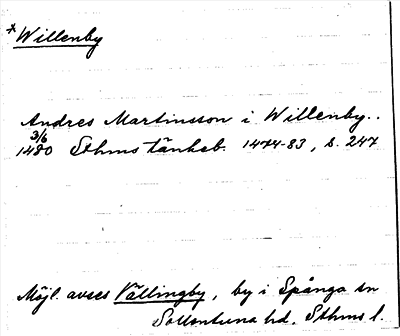 *Willenby
Andres Martinsson i Willenby..
3/6
1480 Sthms tänkeb. 1474-83, s. 247
Möjl. avses Vällingby, by i Spånga sn
Sollentuna hd, Sthms l.